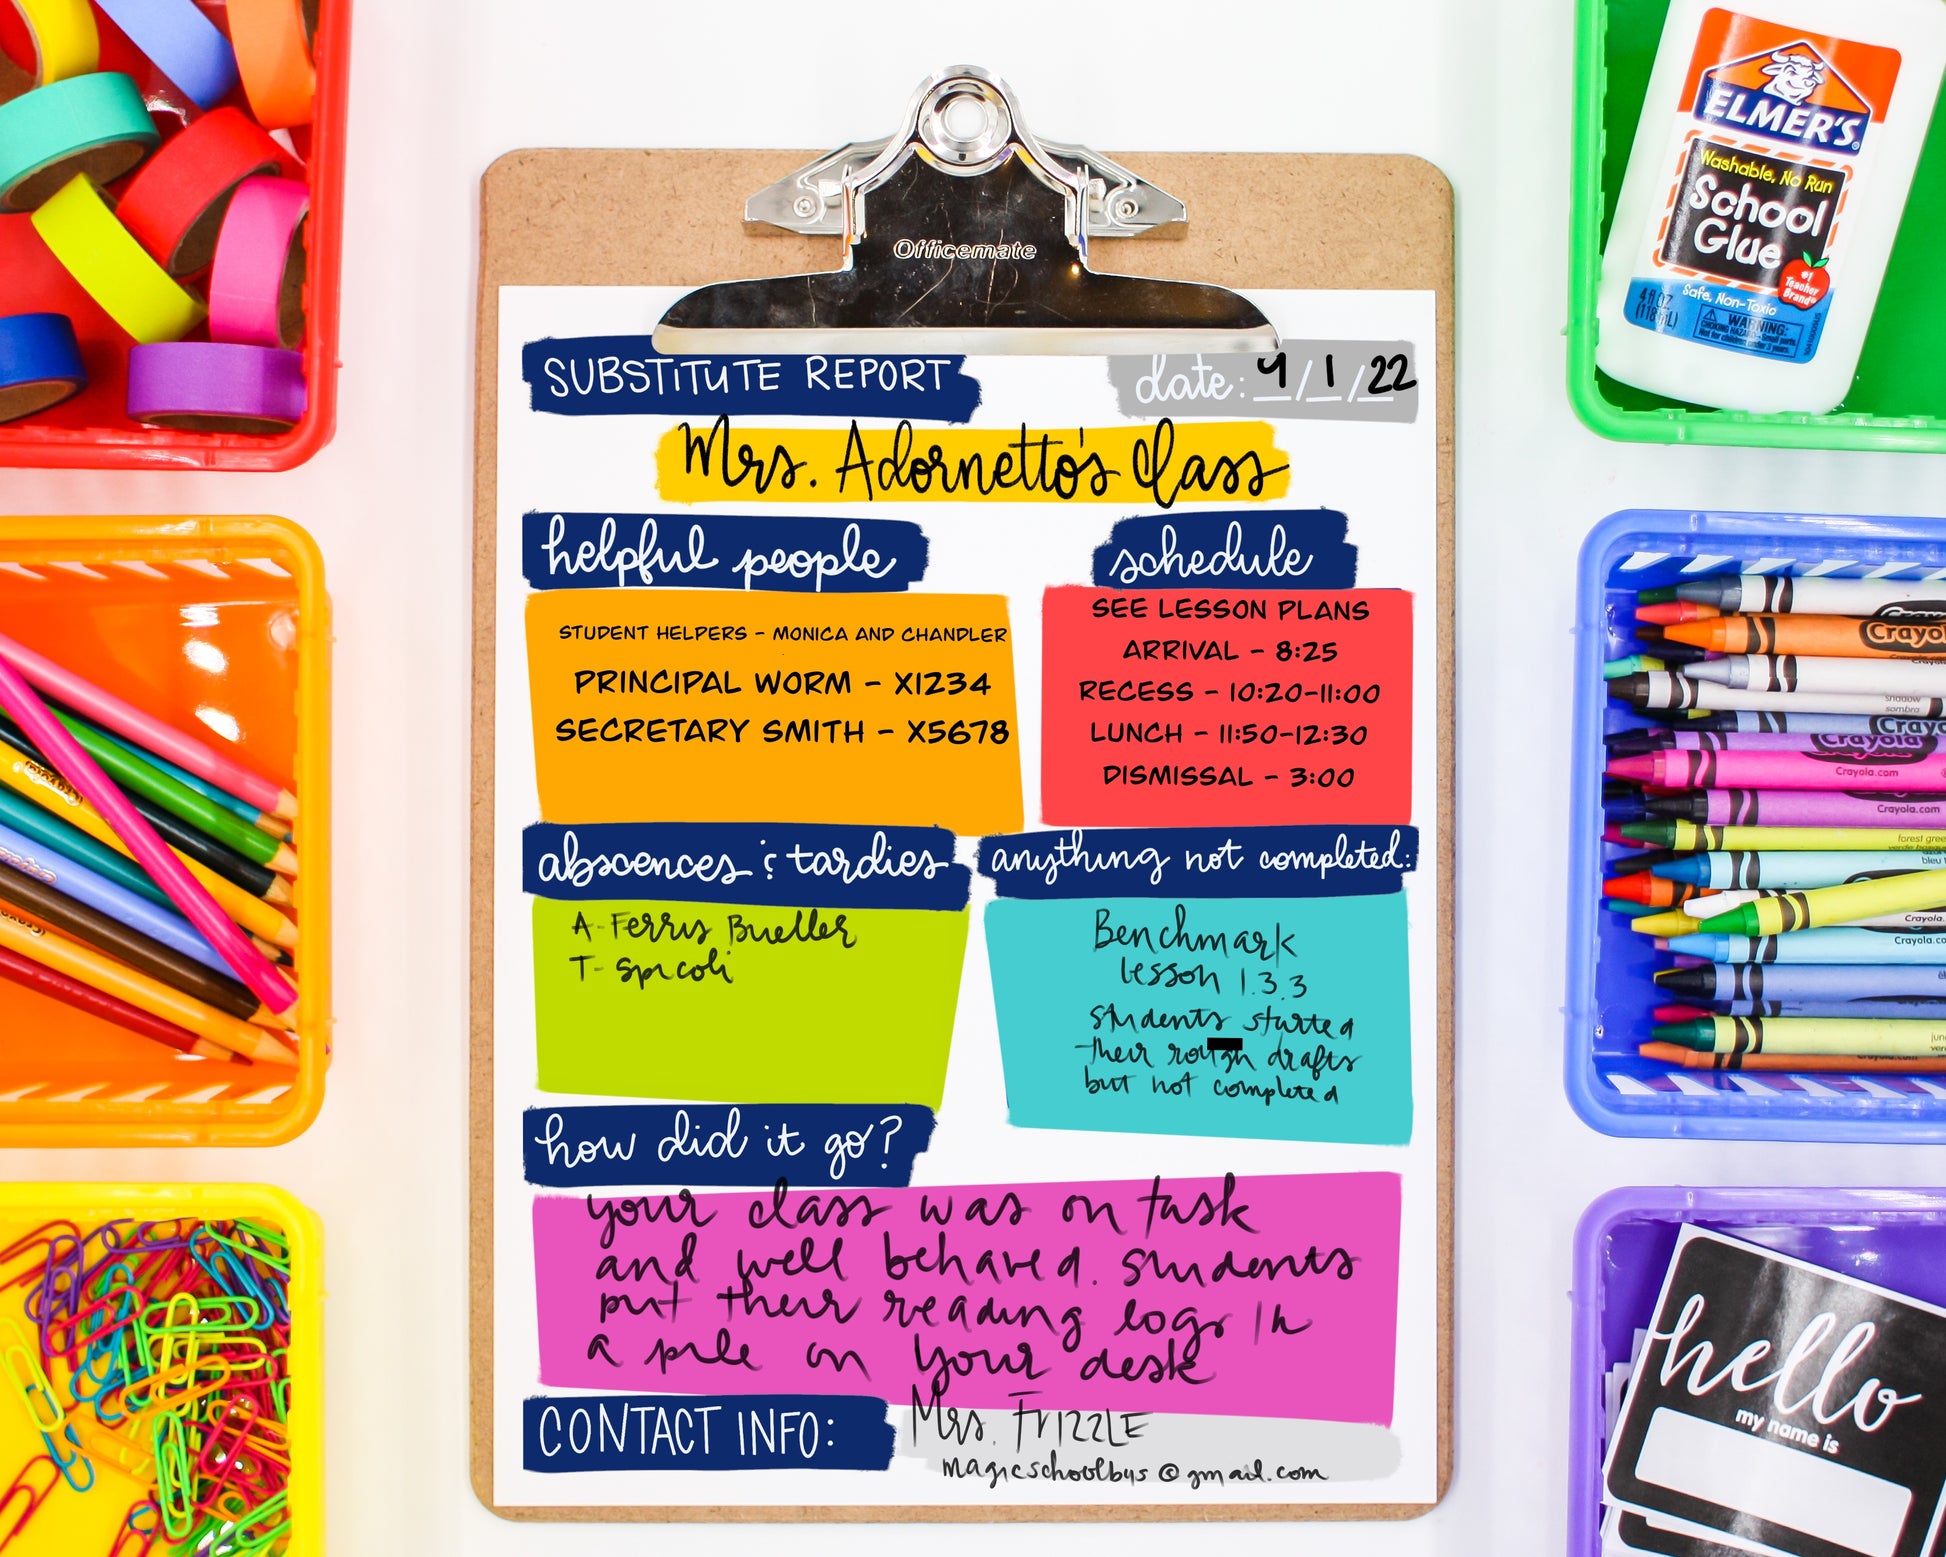 Officemate
SUBSTITUTE REPORT
date: 9/1/22
Mrs. Adornetto's Class
helpful people
STUDENT HELPERS - MONICA AND CHANDLER
PRINCIPAL WORM - X1234
SECRETARY SMITH - X5678
schedule
SEE LESSON PLANS
ARRIVAL - 8:25
RECESS - 10:20-11:00
LUNCH - 11:50-12:30
DISMISSAL - 3:00
abscences & tardies
A- Ferris Bueller
T- Spicoli
anything not completed:
Benchmark
lesson 1.3.3
students started
their rough drafts
but not completed
how did it go?
your class was on task
and well behaved. students
put their reading logs in
a pile on your desk
CONTACT INFO:
Mrs. FRIZZLE
magicschoolbus@gmail.com
ELMER'S
Washable, No Run
School
Glue
#1
Teacher
Brand
Safe, Non-Toxic
4 fl oz
(118 mL)
WARNING:
CHOKING HAZARD - Small parts.
Not for children under 3 years.
Crayola
shadow
sombra
Crayola
Crayola
Crayola.com
Crayola.com
forest green
Crayola.co
Crayola.co
hello
my name is